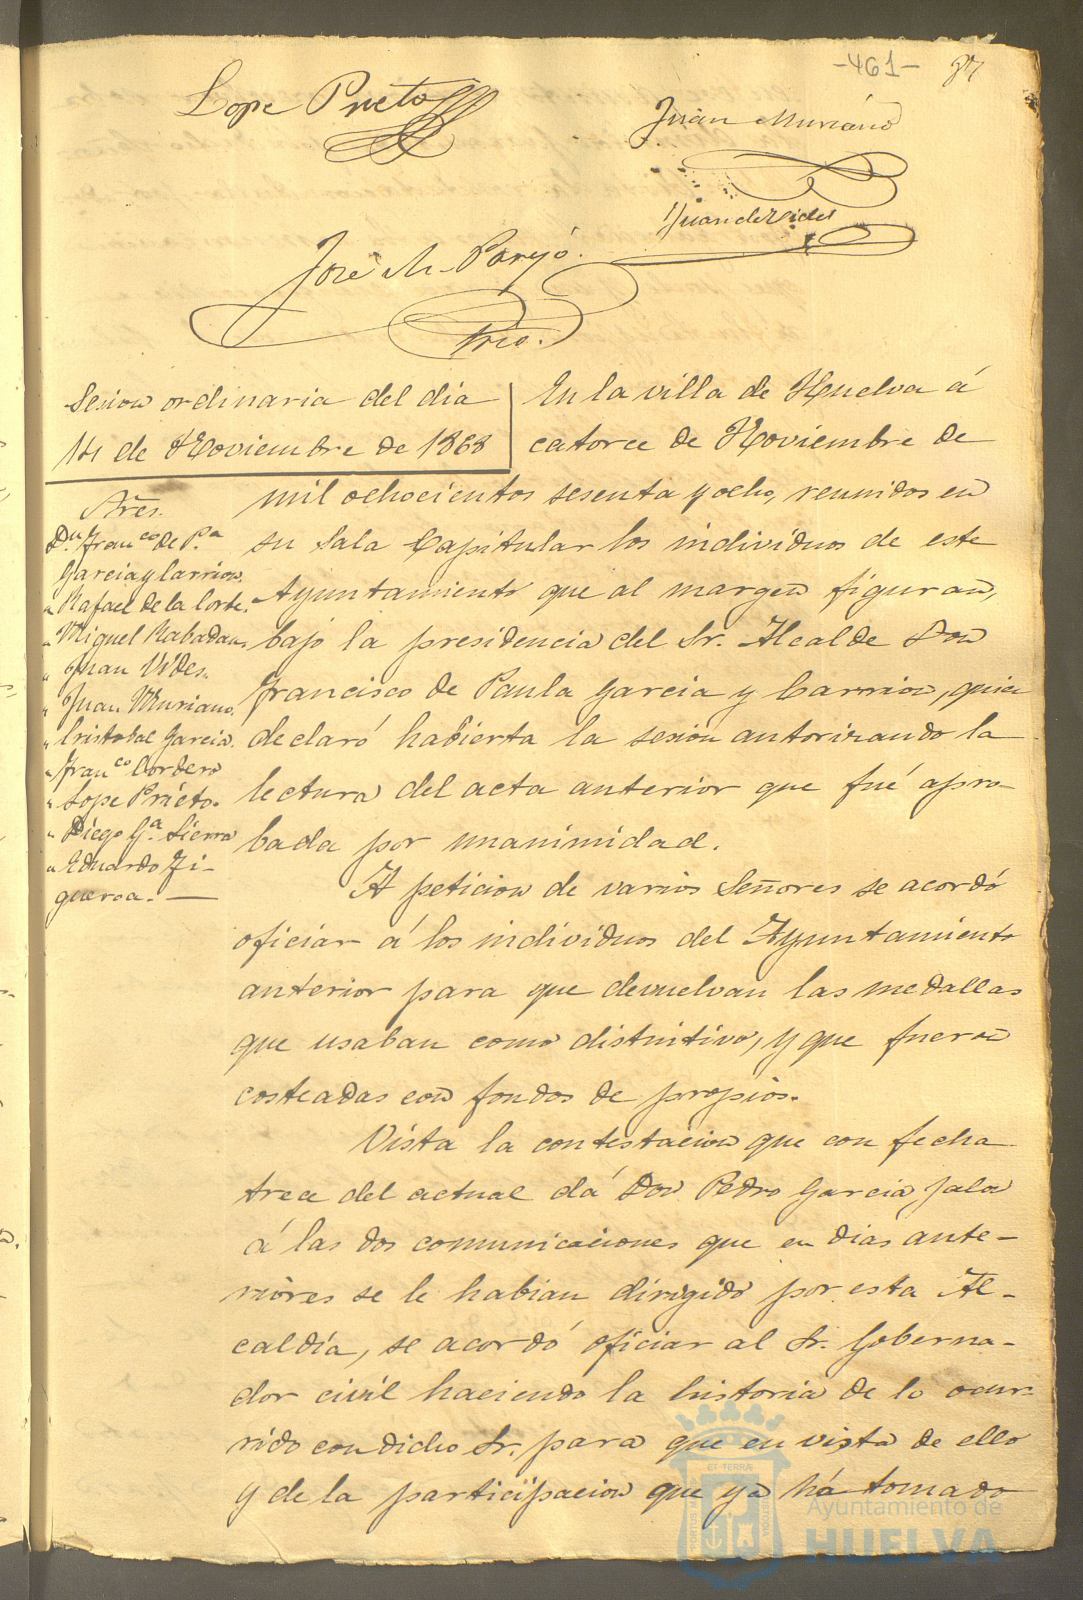 -461- 87
Lope Prieto
Juan Muriano
Juan de Vides
José M. Parejo.
Srio.
Sesion ordinaria del dia
14 de Noviembre de 1868
Sres.
Dn. Franco de Pa.
Garcia y Carrion.
" Rafael de la Corte.
" Miguel Rabadan.
" Juan Vides.
" Juan Muriano.
" Cristobal Garcia.
" Franco Cordero
" Lope Prieto.
" Diego Ga. Sierra
" Eduardo Fi-
gueroa. —
En la villa de Huelva á
catorce de Noviembre de
mil ochocientos sesenta y ocho, reunidos en
su Sala Capitular los individuos de este
Ayuntamiento que al margen figuran,
bajo la presidencia del Sr. Alcalde Don
Francisco de Paula Garcia y Carrion, quien
declaró habierta la sesion autorizando la
lectura del acta anterior que fué apro-
bada por unanimidad.
A peticion de varios Señores se acordó
oficiar á los individuos del Ayuntamiento
anterior para que devuelvan las medallas
que usaban como distintivo, y que fueron
costeadas con fondos de propios.
Vista la contestacion que con fecha
trece del actual dá Don Pedro Garcia Jalon
á las dos comunicaciones que en dias ante-
riores se le habian dirigido por esta Al-
caldía, se acordó oficiar al Sr. Goberna-
dor civil haciendo la historia de lo ocur-
rido con dicho Sr. para que en vista de ello
y de la participacion que ya há tomado
Ayuntamiento de
HUELVA